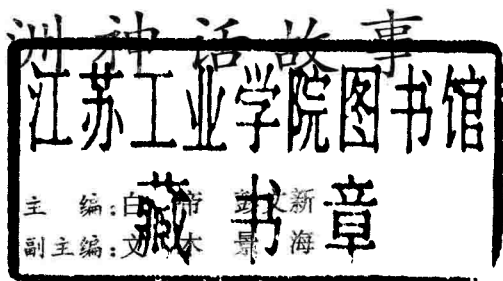 洲神话故事
江苏工业学院图书馆
藏书章
主 编:白 帝 彭文新
副主编:文 木 景 海